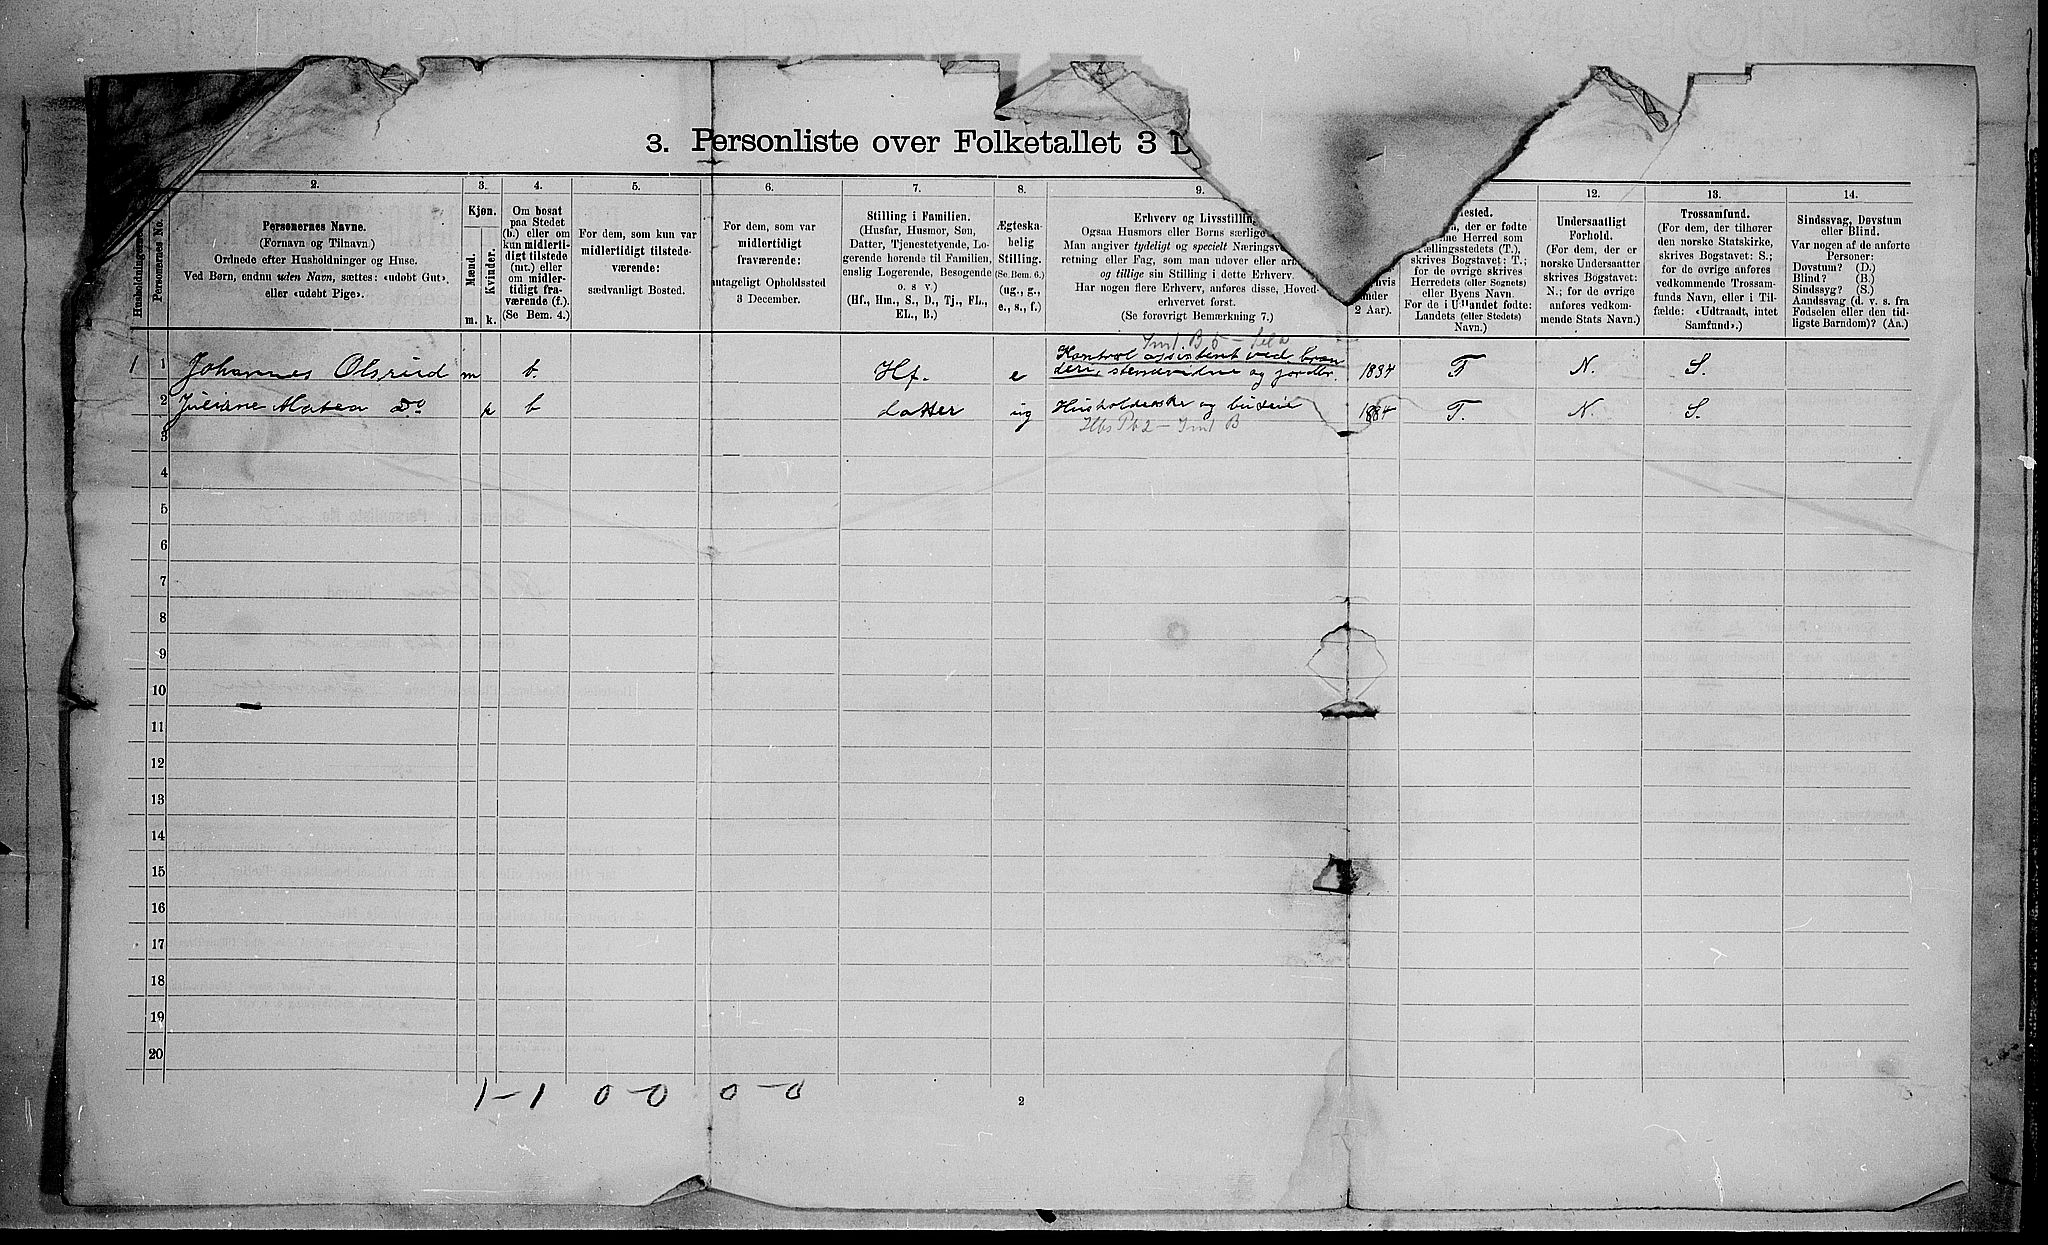 3. Personliste over Folketallet 3 D
Husholdningernes
Personernes No.
2.
Personernes Navne.
(Fornavn og Tilnavn.)
Ordnede efter Husholdninger og Huse.
Ved Børn, endnu uden Navn, sættes: «udøbt Gut»,
eller «udøbt Pige».
3.
Kjøn.
Mænd.
Kvinder.
m.
k.
4.
Om bosat
paa Stedet
(b.) eller om
kun midlerti-
digt tilstede
(mt.) eller
om midler-
tidigt fra-
værende (f.).
(Se Bem. 4.)
5.
For dem, som kun var
midlertidigt tilstede-
værende:
sædvanligt Bosted.
6.
For dem, som var
midlertidigt
fraværende:
antageligt Opholdssted
3 December.
7.
Stilling i Familien.
(Husfar, Husmor, Søn,
Datter, Tjenestetyende, Lo-
gerende hørende til Familien,
enslig Logerende, Besøgende
o. s v.)
(Hf., Hm., S., D., Tj., FL.,
EL., B.)
8.
Ægteska-
belig
Stilling.
(Se Bem. 6.)
(ug., g.,
e., s., f.)
9.
Erhverv og Livsstilling
Ogsaa Husmors eller Børns særlige
Man angiver tydeligt og specielt Næringsve
retning eller Fag, som man udover eller ar
og tillige sin Stilling i dette Erhverv.
Har nogen flere Erhverv, anføres disse, Hoved-
erhvervet først.
(Se forøvrigt Bemærkning 7.)
hvis
under
2 Aar).
ested.
m, der er fødte
me Herred som
ællingsstedets (T.),
skrives Bogstavet: T.;
for de øvrige skrives
Herredets (eller Sognets)
eller Byens Navn.
For de i Udlandet fødte:
Landets (eller Stedets)
Navn.)
12.
Undersaatligt
Forhold.
(For dem, der er
norske Undersaatter
skrives Bogstavet:
N.; for de øvrige
anføres vedkom-
mende Stats Navn.)
13.
Trossamfund.
(For dem, der tilhører
den norske Statskirke,
skrives Bogstavet: S.;
for de øvrige anføres
vedkommende Trossam-
funds Navn, eller i Til-
fælde: «Udtraadt, intet
Samfund».)
14.
Sindssvag, Døvstum
eller Blind.
Var nogen af de anførte
Personer:
Døvstum? (D.)
Blind? (B.)
Sindssyg? (S.)
Aandssvag (d. v. s. fra
Fødselen eller den tid-
ligste Barndom)? (Aa.)
1 1 Johannes Olsrud m b. Hf. e Kontrol assistent ved bræn
deri, og jordbr. 1834 T N. S.
2 Juliane Matea do k b datter ug Husholderske og budeie 1884 T. N. S.
3
4
5
6
7
8
9
10
11
12
13
14
15
16
17
18
19
20
1-1 0-0 0-0
2